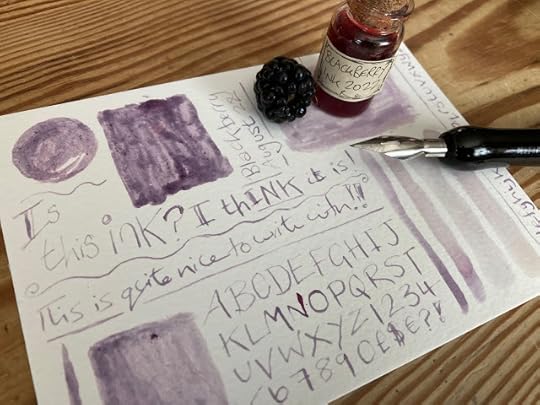 BLACKBERRY
INK 2022
Blackberry
August 22
Is
this ink? I thINK it is!
This is quite nice to write with!!
ABCDEFGHIJ
KLMNOPQRST
UVWXYZ1234
67890£$€?!